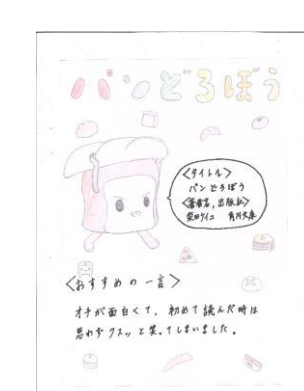 パンどろぼう
〈タイトル〉
パンどろぼう
〈著者名，出版社〉
柴田ケイコ　角川文庫
〈おすすめの一言〉
オチが面白くて，初めて読んだ時は
思わずクスッと笑ってしまいました。